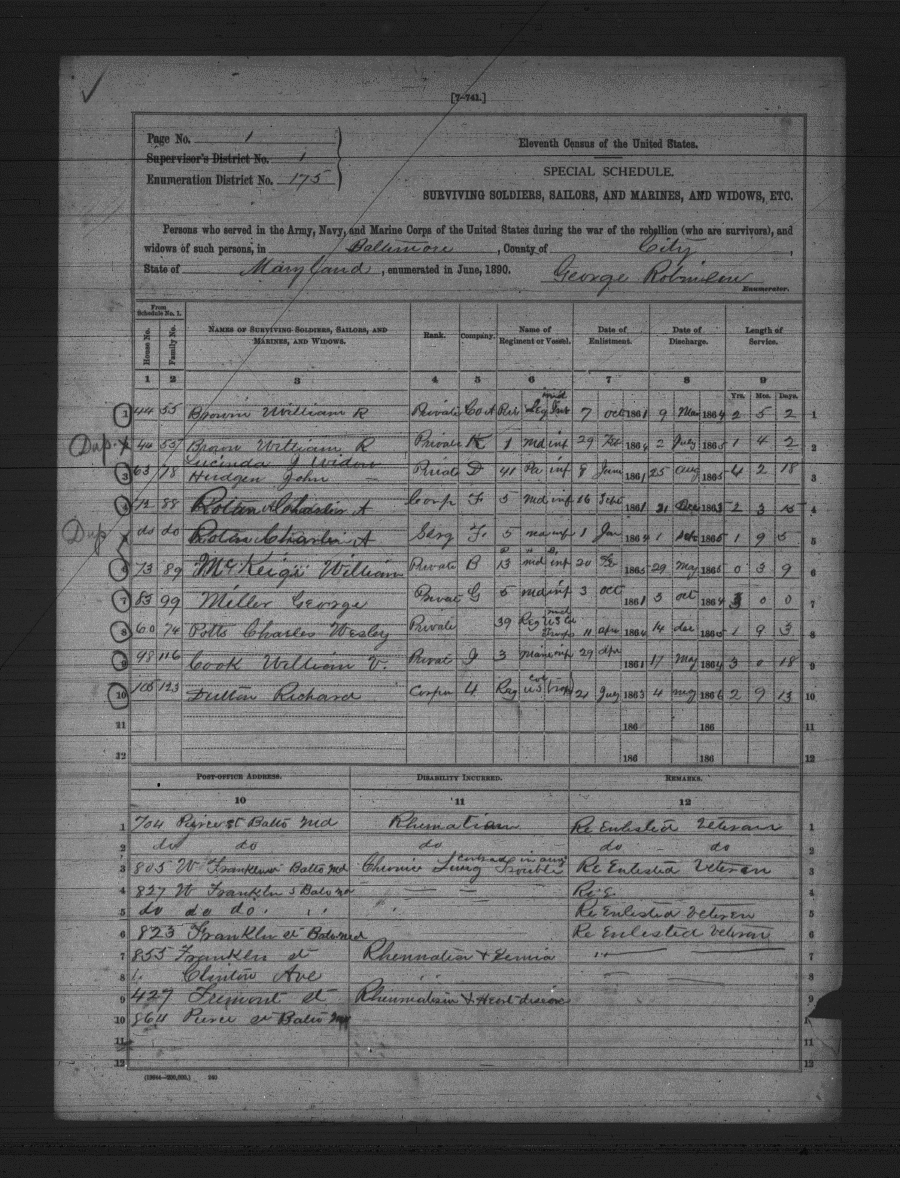 [7-741.]
Page No. 1
Supervisor's District No. 1
Enumeration District No. 175
Eleventh Census of the United States.
SPECIAL SCHEDULE.
SURVIVING SOLDIERS, SAILORS, AND MARINES, AND WIDOWS, ETC.
Persons who served in the Army, Navy, and Marine Corps of the United States during the war of the rebellion (who are survivors), and
widows of such persons, in Baltimore, County of City,
State of Maryland, enumerated in June, 1890. George Robinson
Enumerator.
From Schedule No. 1.
House No. Family No. NAMES OF SURVIVING SOLDIERS, SAILORS, AND MARINES, AND WIDOWS. Rank. Company. Name of Regiment or Vessel. Date of Enlistment. Date of Discharge. Length of Service.
1 2 3 4 5 6 7 8 9
Yrs. Mos. Days.
1 44 55 Brown William R Private Co A 7 oct 1861 9 Mar 1864 2 5 2 1
Dup. 44 55 Brown William R Private K 1 md inf 29 Feb 1864 2 July 1865 1 4 2 2
Lucinda J Widow
3 63 78 Hudgen John Private D 41 Pa inf 8 June 1861 25 aug 1865 4 2 18 3
4 72 88 Rotan Charles A Corp F. 5 md inf 16 Sept 1861 31 Dec 1863 2 3 15 4
Dup do do Rotan Charles A Serg F. 5 md inf 1 Jan 1864 1 1865 1 9 5 5
6 73 89 McKeige William Private B 13 md inf 20 Fe 1865 29 May 1865 0 3 9 6
7 83 99 Miller George Privat G 5 md inf 3 oct 1861 3 oct 1864 3 0 0 7
8 60 74 Potts Charles Wesley Private 39 Reg US Troops 11 apr 1864 14 dec 1865 1 9 3 8
9 98 116 Cook William V. Privat I 3 inf 29 Apr 1861 17 May 1864 3 0 18 9
10 105 123 Dutton Richard Corpu 4 Reg US col trop 21 July 1863 4 may 1866 2 9 13 10
11 186 186 11
12 186 186 12
POST-OFFICE ADDRESS. DISABILITY INCURRED. REMARKS.
10 11 12
1 704 Pierce st Balto Md Rhematism Re Enlisted Veteran 1
2 do do do do do 2
3 805 W Franklin Balto Md Chronic Lung Trouble contrad in aug Re Enlisted Veteran 3
4 827 W Franklin S Balto Re E. 4
5 do do do Re Enlisted Veteren 5
6 823 Franklin st Balto md Re Enlisted Veteran 6
7 855 Franklin st 7
8 Clinton Ave 8
9 427 Fremont st Rheumatism & Heart disease 9
10 864 Pierce st Balto Md
11 11
12 12